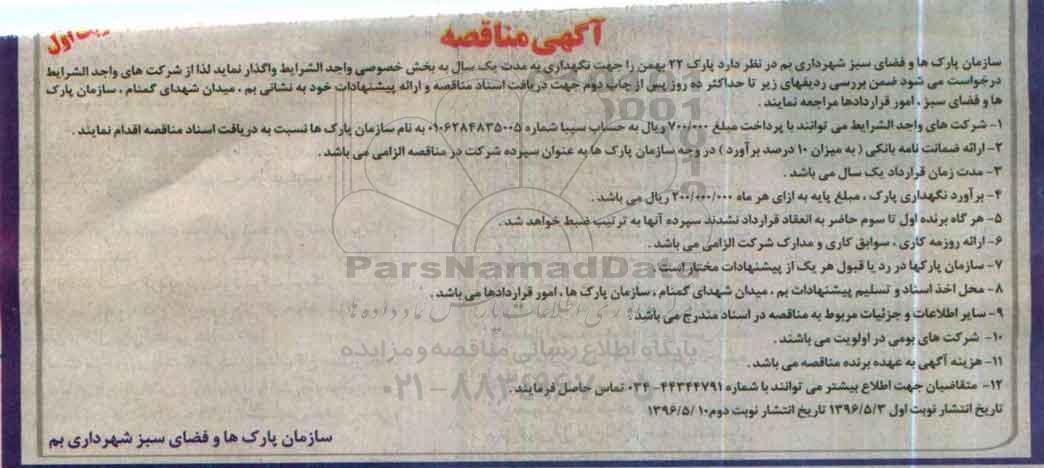 آگهی مناقصه
نوبت اول
سازمان پارک ها و فضای سبز شهرداری بم در نظر دارد پارک ۲۲ بهمن را جهت نگهداری به مدت یک سال به بخش خصوصی واجد الشرایط واگذار نماید لذا از شرکت های واجد الشرایط
درخواست می شود ضمن بررسی ردیفهای زیر تا حداکثر ده روز پس از چاپ دوم جهت دریافت اسناد مناقصه و ارائه پیشنهادات خود به نشانی بم ، میدان شهدای گمنام ، سازمان پارک
ها و فضای سبز ، امور قراردادها مراجعه نمایند .
۱- شرکت های واجد الشرایط می توانند با پرداخت مبلغ ۷۰۰/۰۰۰ ریال به حساب سیبا شماره ۰۱۰۶۲۸۴۸۳۵۰۰۵ به نام سازمان پارک ها نسبت به دریافت اسناد مناقصه اقدام نمایند .
۲- ارائه ضمانت نامه بانکی ( به میزان ۱۰ درصد برآورد ) در وجه سازمان پارک ها به عنوان سپرده شرکت در مناقصه الزامی می باشد .
۳- مدت زمان قرارداد یک سال می باشد .
۴- برآورد نگهداری پارک ، مبلغ پایه به ازای هر ماه ۲۰۰/۰۰۰/۰۰۰ ریال می باشد .
۵- هر گاه برنده اول تا سوم حاضر به انعقاد قرارداد نشدند سپرده آنها به ترتیب ضبط خواهد شد .
۶- ارائه روزمه کاری ، سوابق کاری و مدارک شرکت الزامی می باشد .
۷- سازمان پارکها در رد یا قبول هر یک از پیشنهادات مختار است .
۸- محل اخذ اسناد و تسلیم پیشنهادات بم ، میدان شهدای گمنام ، سازمان پارک ها ، امور قراردادها می باشد .
۹- سایر اطلاعات و جزئیات مربوط به مناقصه در اسناد مندرج می باشد .
۱۰- شرکت های بومی در اولویت می باشند .
۱۱- هزینه آگهی به عهده برنده مناقصه می باشد .
۱۲- متقاضیان جهت اطلاع بیشتر می توانند با شماره ۴۴۳۴۴۷۹۱-۰۳۴ تماس حاصل فرمایند .
تاریخ انتشار نوبت اول ۱۳۹۶/۵/۳ تاریخ انتشار نوبت دوم ۱۳۹۶/۵/۱۰
سازمان پارک ها و فضای سبز شهرداری بم
ParsNamadData
پایگاه اطلاع رسانی مناقصه و مزایده